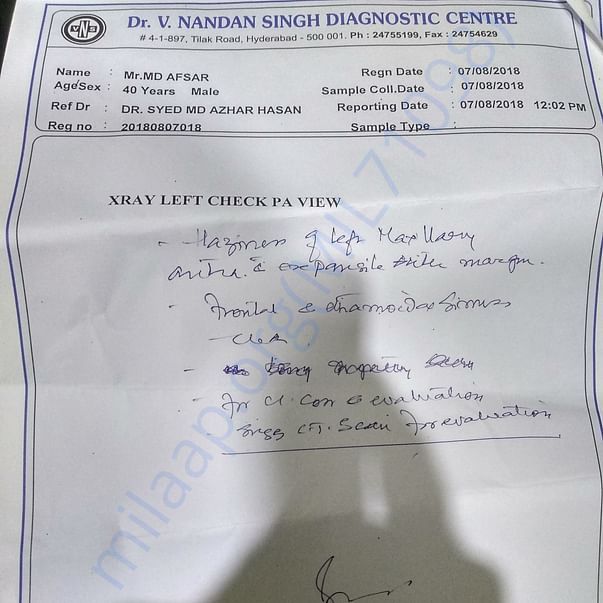 VNS
Dr. V. NANDAN SINGH DIAGNOSTIC CENTRE
# 4-1-897, Tilak Road, Hyderabad - 500 001. Ph : 24755199, Fax : 24754629
Name : Mr.MD AFSAR Regn Date : 07/08/2018
Age/Sex : 40 Years Male Sample Coll.Date : 07/08/2018
Ref Dr : DR. SYED MD AZHAR HASAN Reporting Date : 07/08/2018 12:02 PM
Reg no : 20180807018 Sample Type :
XRAY LEFT CHECK PA VIEW
- Haziness of left Maxillary
expansile margin.
- Frontal & Sinuses
-
- evaluation
Sugg CT. Scan For evaluation
milaap.org(MIL71098)